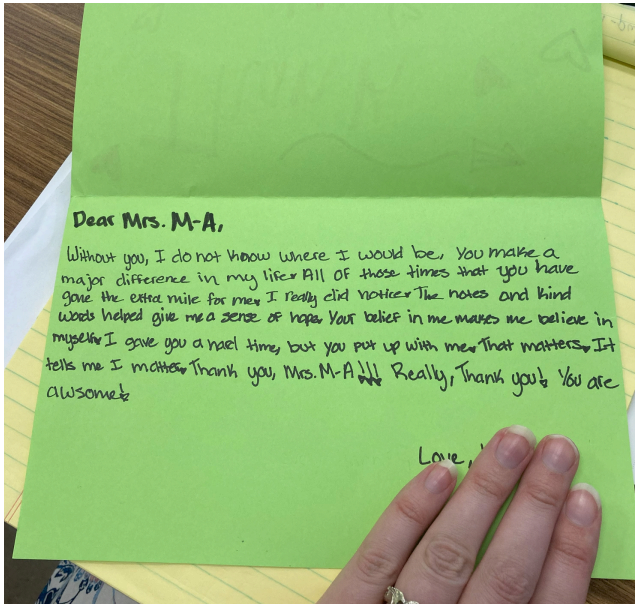 Dear Mrs. M-A,
Without you, I do not know where I would be. You make a
major difference in my life. All of those times that you have
gone the extra mile for me, I really did notice. The notes and kind
words helped give me a sense of hope. Your belief in me makes me believe in
myself. I gave you a hard time, but you put up with me. That matters. It
tells me I matter. Thank you, Mrs. M-A!!! Really, Thank you! You are
awsome!
Love,